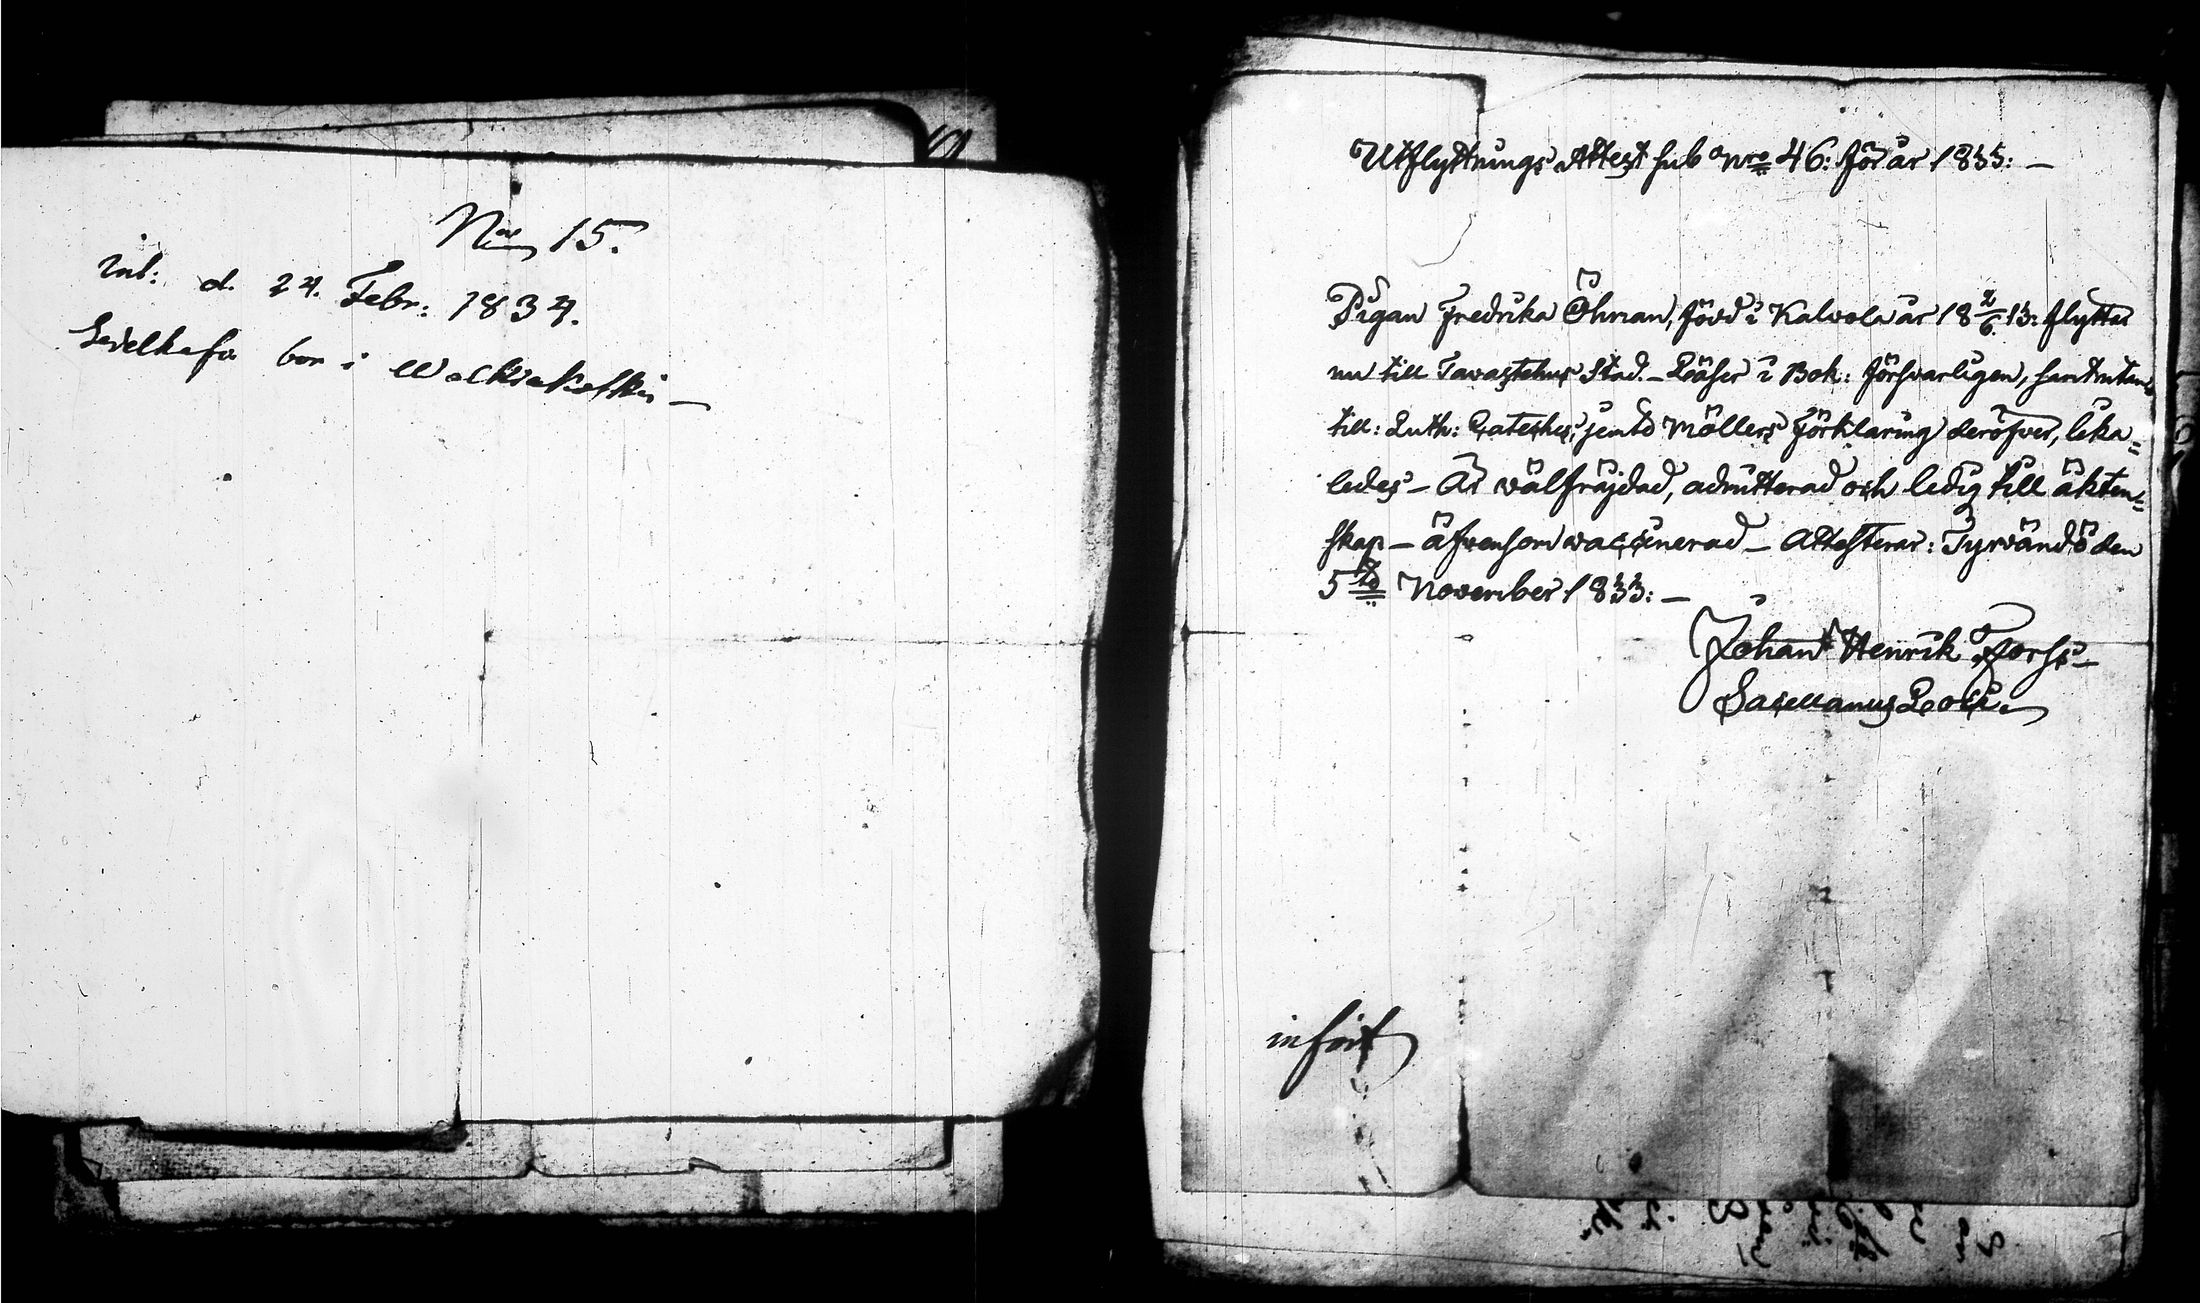 No 15.
Inl: d. 24. Febr: 1834.
Sedelhafv bor i Walkiakoski —
Utflyttnings Attest sub Nro 46: för år 1833: —
Pigan Fredrika Öhman, född i Kalvola år 18 2/6 13: flyttar
nu till Tavastehus Stad. — Läser i Bok: försvarligen, samt utan=
till: Luth: Cateches; jemte Möllers Förklaring deröfver, lika=
ledes — Är wälfräjdad, admitterad och ledig till äkten=
skap — äfvensom waccinerad — Attesterar: Tyrvändö den
5te November 1833: —
Johan Henrik Forss —
Sacellanus Loci.
infört